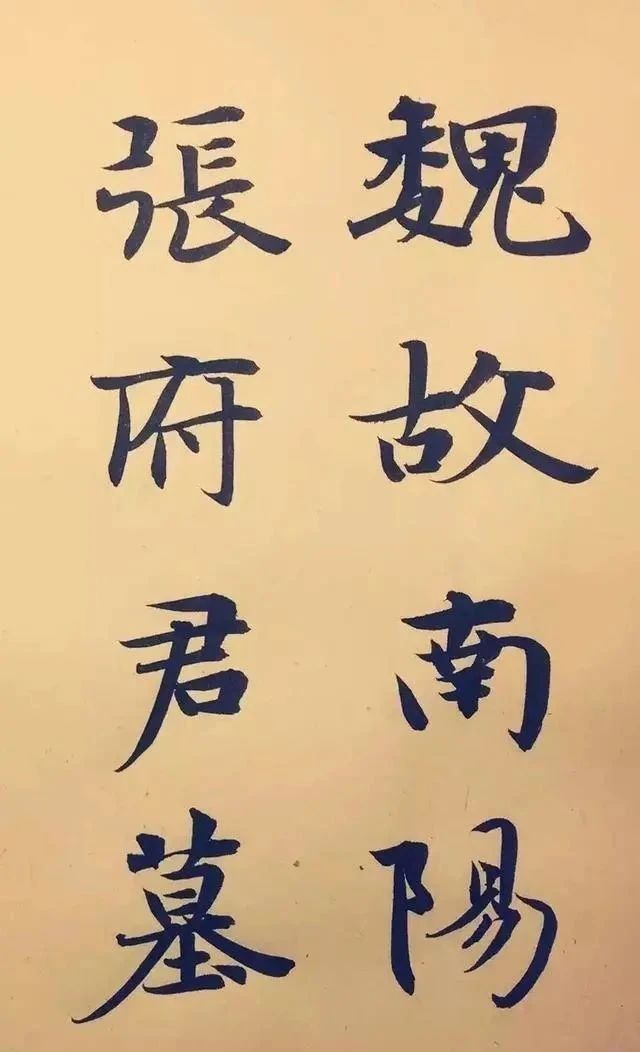 魏故南陽
張府君墓